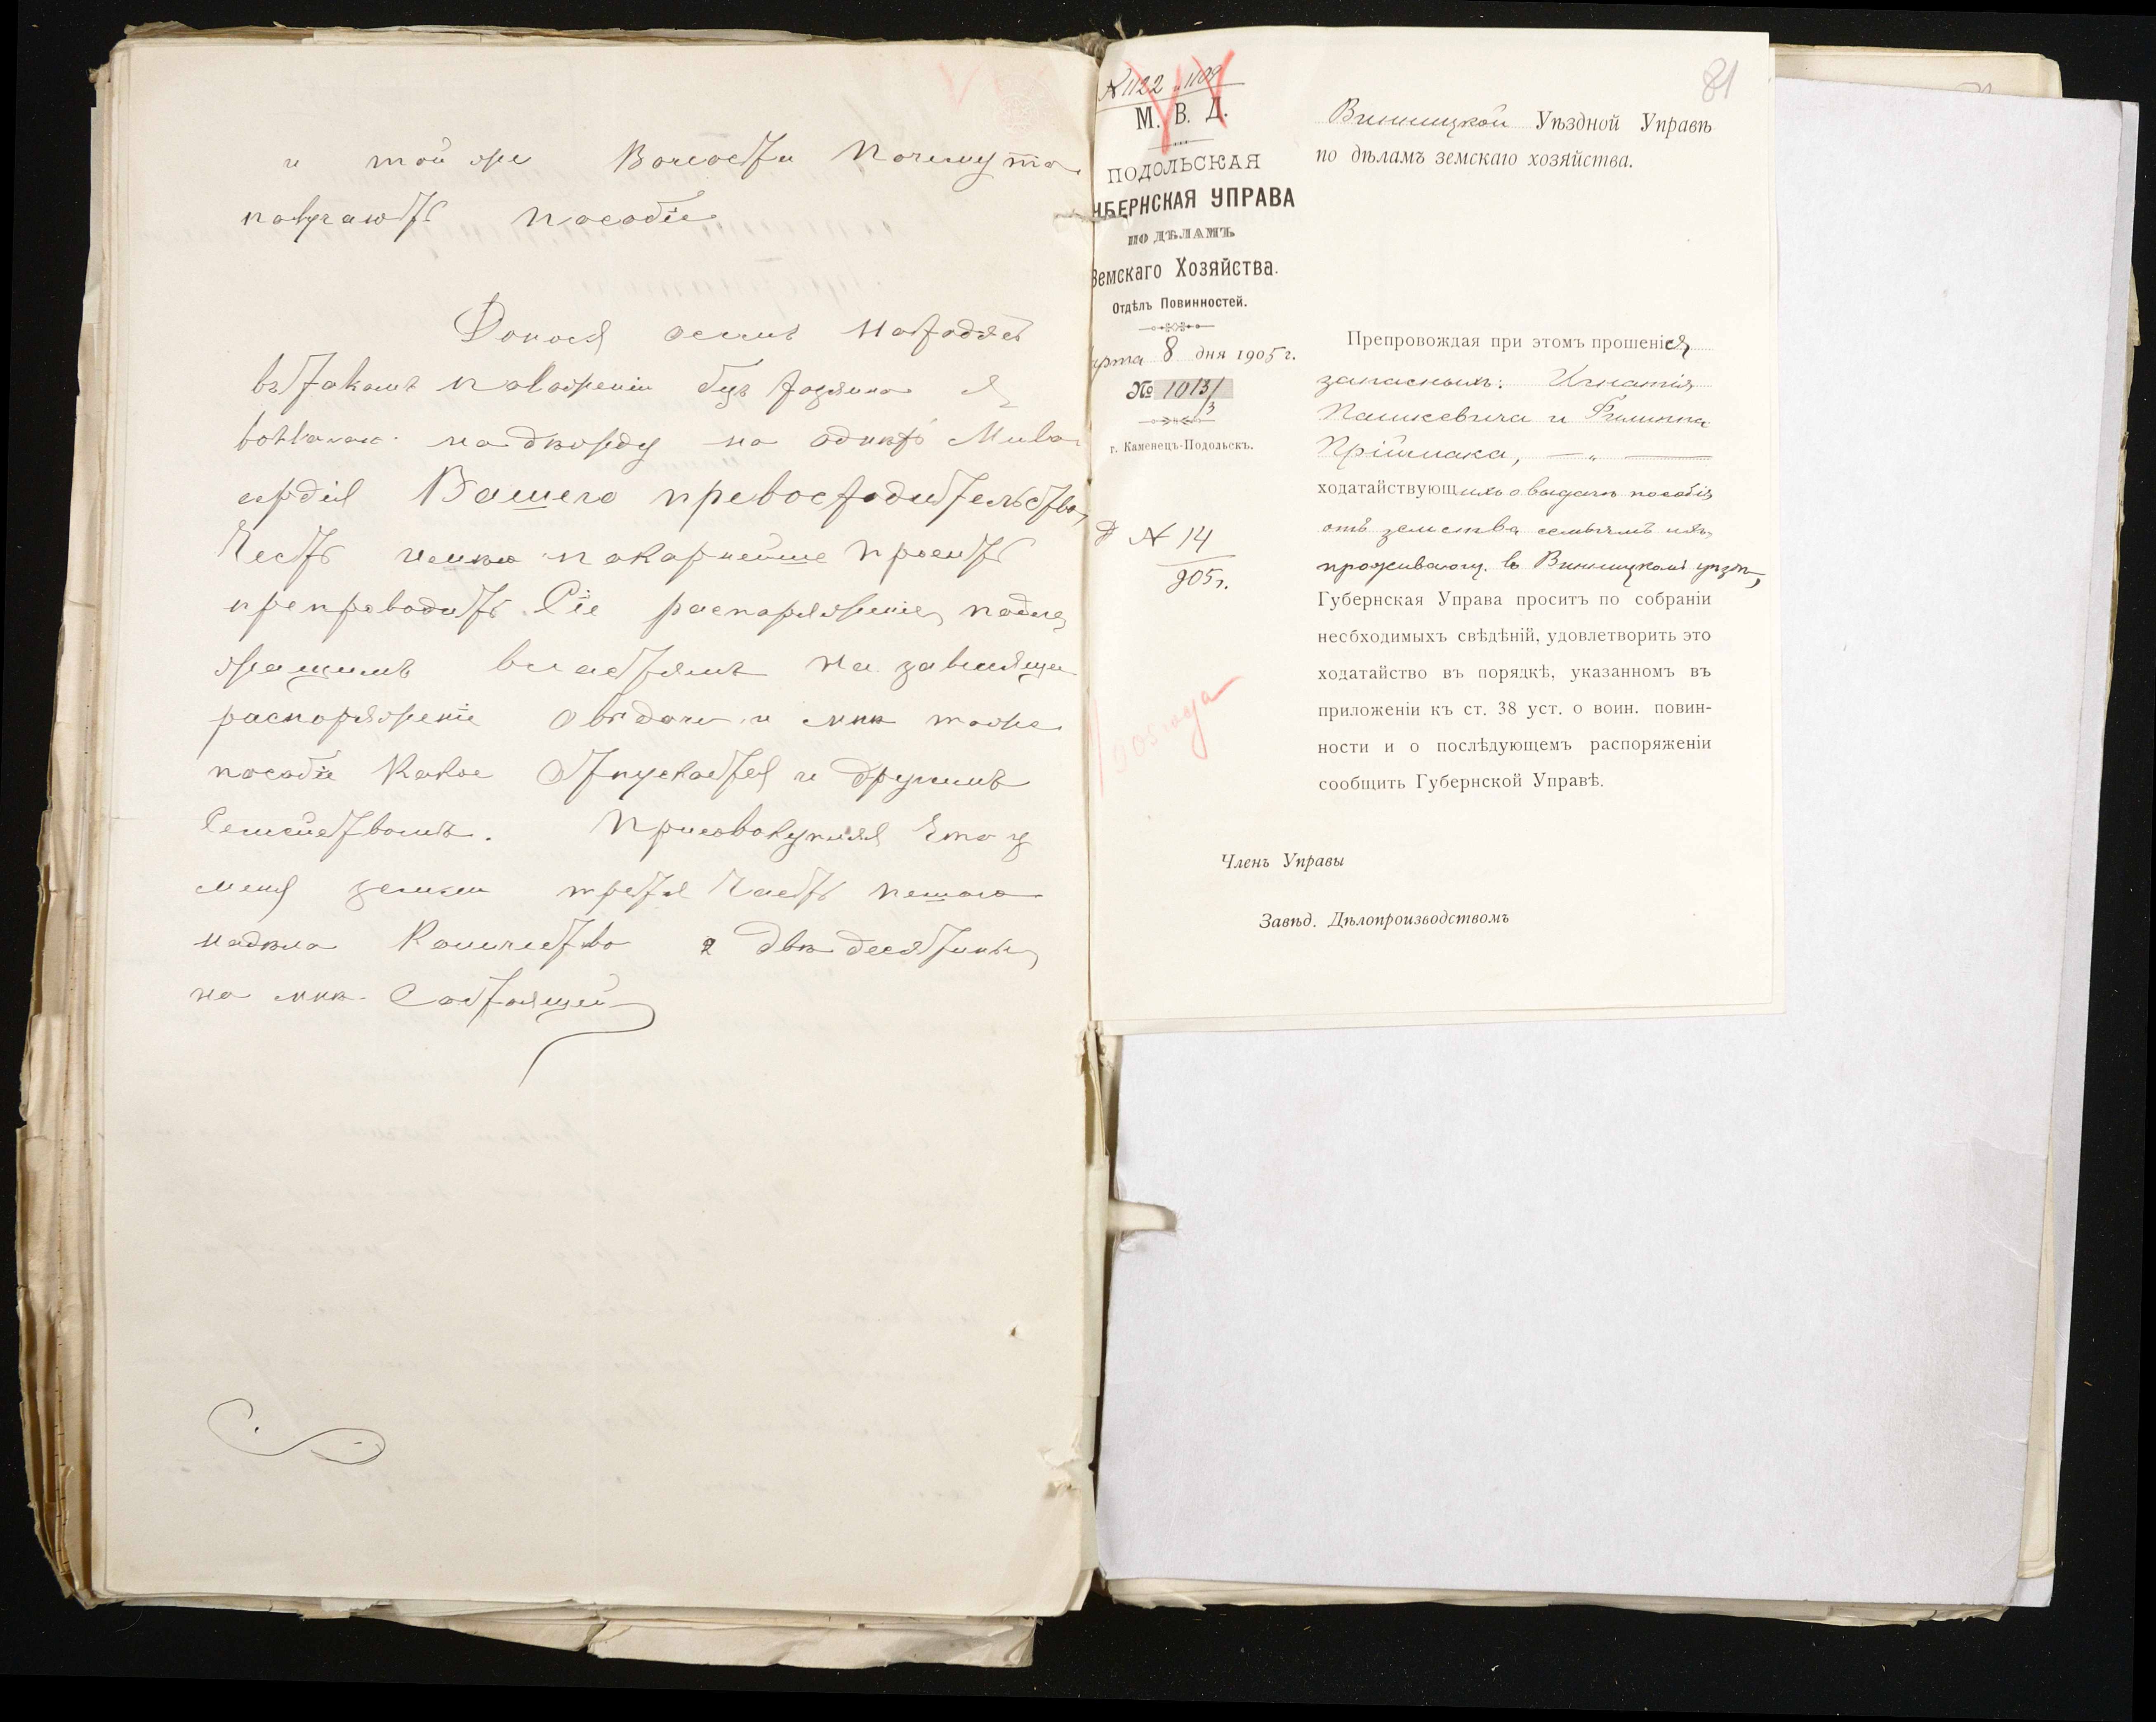 и той же Волости Почему то
получаютъ пособіе
Донося осемъ находясъ
въ такомъ положеніи безъ хозяина я
возлагаю надежду на однехъ Мило
сердіе Вашего превосходительства,
Честь имею покорнейше просить
препроводить Сіе распоряженіе, подле,
жащимъ властямъ на зависяще
распоряженіе овыдачи и мнѣ тоже
пособіе Какое Отпускается и другимъ
Семействамъ. Присовокупляя Что у
меня земли третя Часть пешаго
надела Количество 2 двѣ десятины,
на мнѣ Состоящей
№ 1122 и 1109
М. В. Д.
ПОДОЛЬСКАЯ
УБЕРНСКАЯ УПРАВА
ПО ДѢЛАМЪ
Земскаго Хозяйства.
Отдѣлъ Повинностей.
арта 8 дня 1905 г.
№ 1013/3
г. Каменецъ-Подольскъ.
№ 14
905 г.
81
Винницкой Уѣздной Управѣ
по дѣламъ земскаго хозяйства.
Препровождая при этомъ прошенія
запасныхъ: Игнатія
Пашкевича и Филиппа
Пріймака, — „ —
ходатайствующихъ о выдачѣ пособія
отъ земства семьямъ ихъ,
проживающ. въ Винницкомъ уѣздѣ,
Губернская Управа проситъ по собраніи
несбходимыхъ свѣдѣній, удовлетворить это
ходатайство въ порядкѣ, указанномъ въ
приложеніи къ ст. 38 уст. о воин. повин-
ности и о послѣдующемъ распоряженіи
сообщить Губернской Управѣ.
Членъ Управы
Завѣд. Дѣлопроизводствомъ